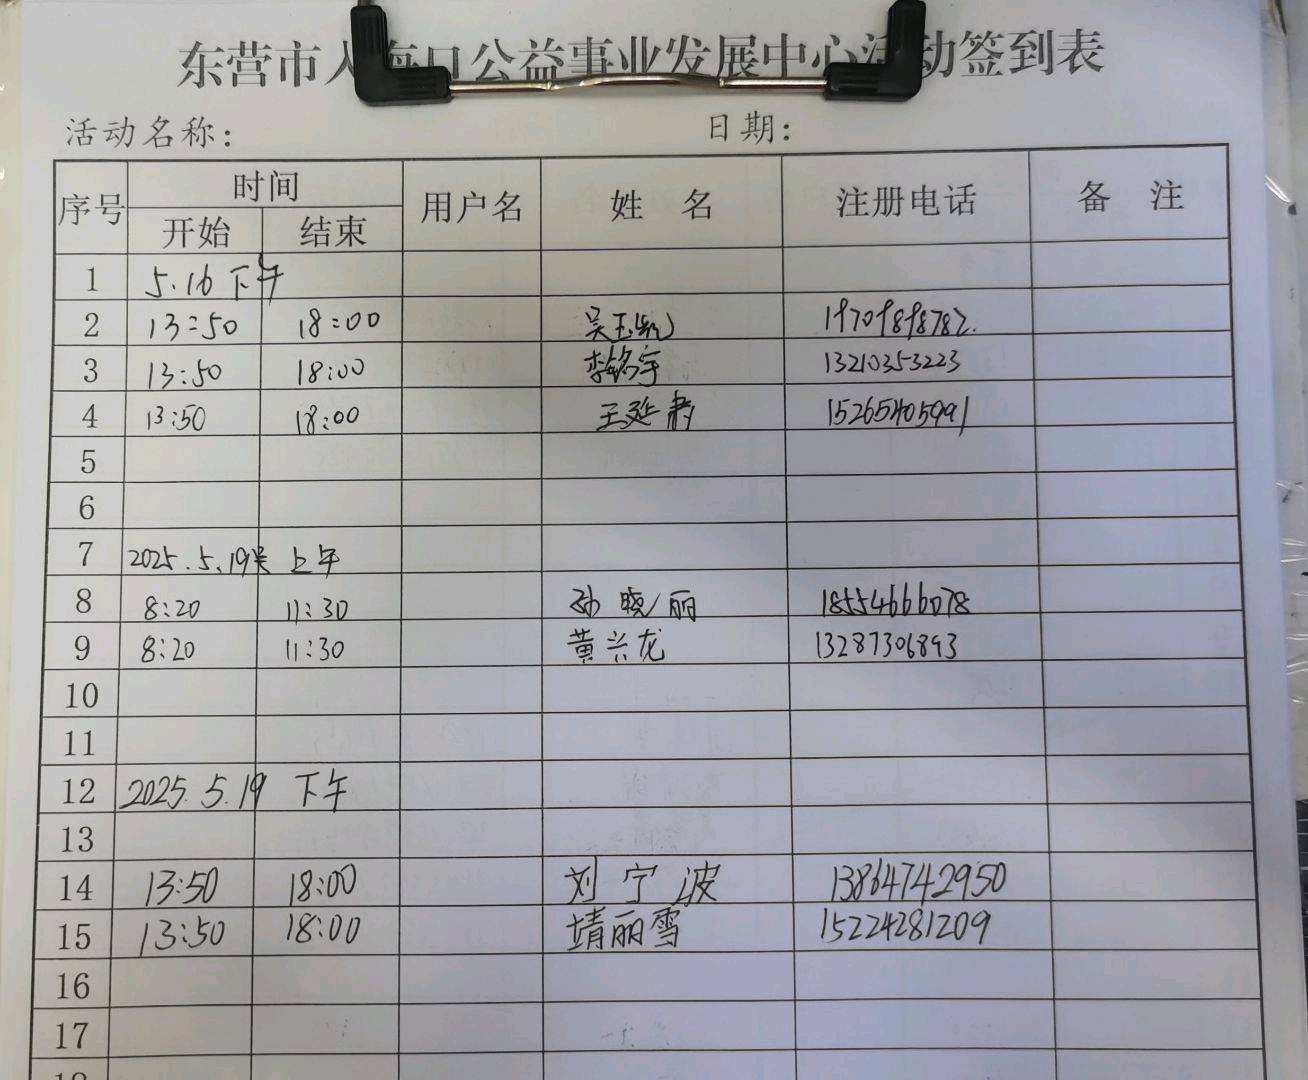 东营市入海口公益事业发展中心活动签到表
活动名称: 日期:
序号 时间 用户名 姓 名 注册电话 备 注
开始 结束
1 5.16 下午
2 13:50 18:00 吴玉凯
3 13:50 18:00 李铭宇 13210353223
4 13:50 18:00 王延 15265405991
5
6
7 2025.5.19号 上午
8 8:20 11:30 孙晓丽 18554666078
9 8:20 11:30 黄兴龙 13287306893
10
11
12 2025.5.19 下午
13
14 13:50 18:00 刘宁波 13864742950
15 13:50 18:00 靖丽雪 15224281209
16
17
18